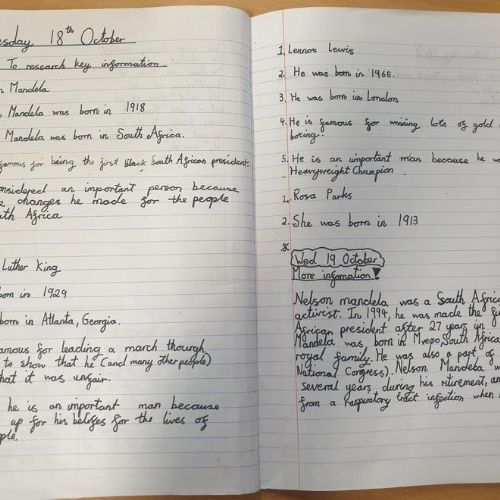 esday 18th October
To research key information
n Mandela
Mandela was born in 1918
Mandela was born in South Africa.
famous for being the first Black South African president.
onsidered an important person because
changes he made for the people
uth Africa
Luther King
orn in 1929
born in Atlanta, Georgia.
amous for leading a march though
to show that he (and many other people)
hat it was unfair.
he is an important man because
up for his beliefes for the lives of
ple.
1. Lennox Lewis
2. He was born in 1965.
3. He was born in London
4. He is famous for wining lots of gold
boxing.
5. He is an important man because he w
Heavyweight Champion.
1. Rosa Parks
2. She was born in 1913
Wed 19 October
More infomation
Nelson mandela was a South Africa
activist. In 1994, he was made the fi
African president after 27 years in
Mandela was born in Mvezo, South Africa
royal family. He was also a part of
National Congress). Nelson Mandela w
several years during his ritirement, an
from a respiratory tract infection when